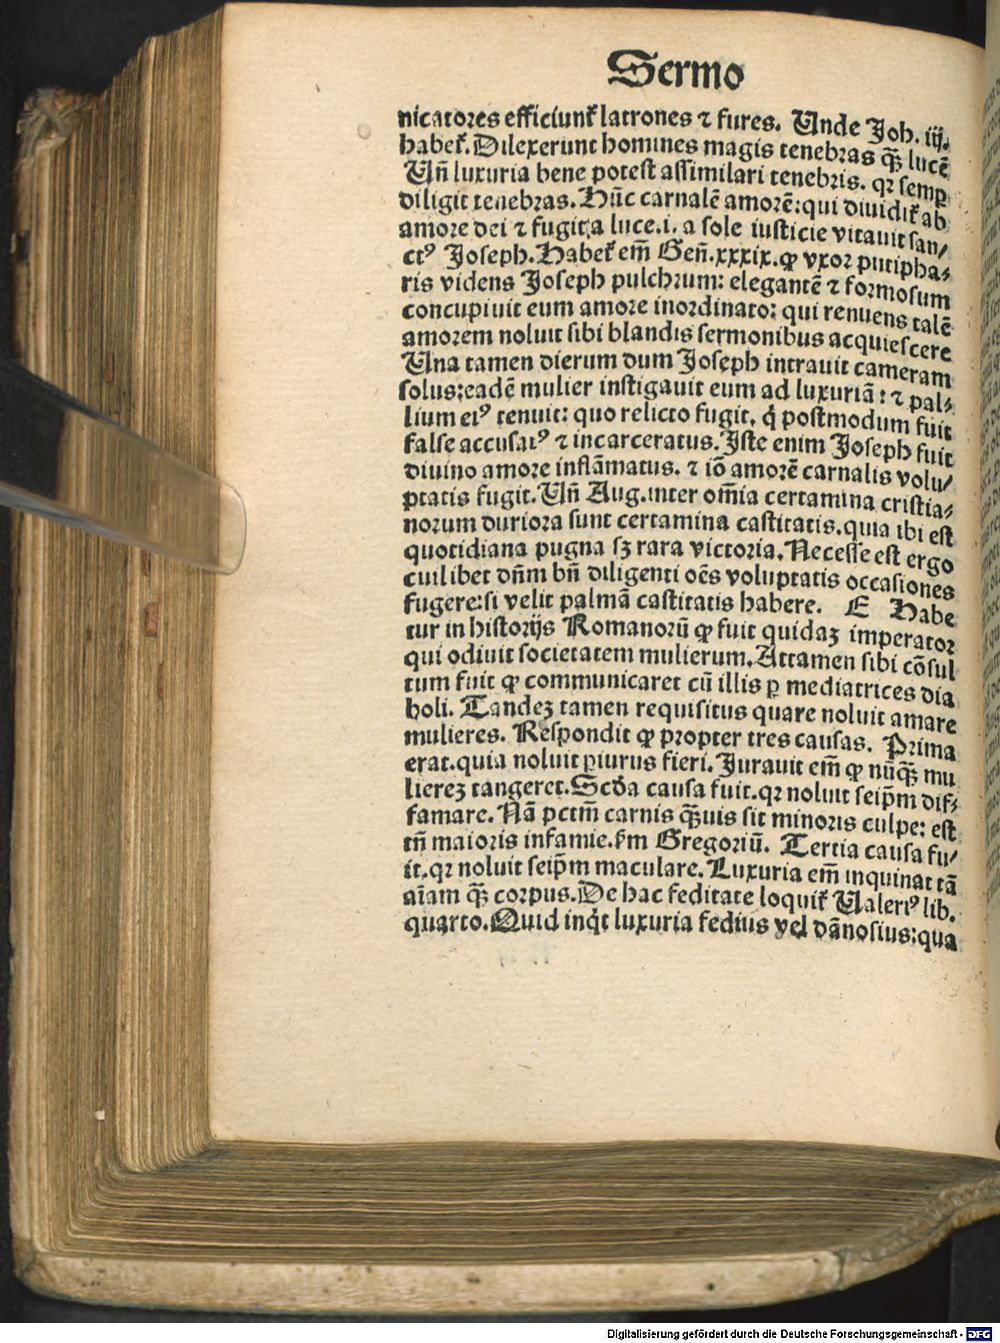 Sermo
nicatores efficiunt᷑ latrones ⁊ fures. Unde Joh. iij.
habet᷑. Dilexerunt homines magis tenebras q̄ꝫ lucē
Un̄ luxuria bene potest assimilari tenebris. qꝛ semꝑ
diligit tenebras. Hūc carnalē amorē: qui diuidit᷑ ab
amore dei ⁊ fugit a luce .i. a sole iusticie vitauit san/
ctꝰ Joseph. Habet᷑ em̄ Gen̄. xxxix. ꝙ vxor putipha⸗
ris videns Joseph pulchrum: elegantē ⁊ formosum
concupiuit eum amore inordinato: qui renuens talē
amorem noluit sibi blandis sermonibus acquiescere
Una tamen dierum dum Joseph intrauit cameram
solus: eadē mulier instigauit eum ad luxuriā: ⁊ pal⸗
lium eiꝰ tenuit: quo relicto fugit, q̇ postmodum fuit
false accusatꝰ ⁊ incarceratus. Iste enim Joseph fuit
diuino amore inflāmatus. ⁊ iō amorē carnalis volu/
ptatis fugit. Un̄ Aug. inter om̄ia certamina cristia⸗
norum duriora sunt certamina castitatis. quia ibi est
quotidiana pugna sꝫ rara victoria. Necesse est ergo
cuilibet dn̄m bn̄ diligenti oēs voluptatis occasiones
fugere: si velit palmā castitatis habere. E Habe
tur in historijs Romanorū ꝙ fuit quidaꝫ imperator
qui odiuit societatem mulierum. Attamen sibi cōsul
tum fuit ꝙ communicaret cū illis ꝑ mediatrices dia
boli. Tandeꝫ tamen requisitus quare noluit amare
mulieres. Respondit ꝙ propter tres causas. Prima
erat. quia noluit ꝑiurus fieri. Jurauit em̄ ꝙ nūq̄ꝫ mu
liereꝫ tangeret. Scd̄a causa fuit. qꝛ noluit seip̄m dif⸗
famare. Nā pctm̄ carnis q̄ꝫuis sit minoris culpe: est
tn̄ maioris infamie. ẜm Gregoriū. Tertia causa fu/
it. qꝛ noluit seip̄m maculare. Luxuria em̄ inquinat tā
aīam q̄ꝫ corpus. De hac feditate loquit᷑ Ualeriꝰ lib.
quarto. Quid inq̇t luxuria fedius vel dānosius: qua
Digitalisierung gefördert durch die Deutsche Forschungsgemeinschaft - DFG